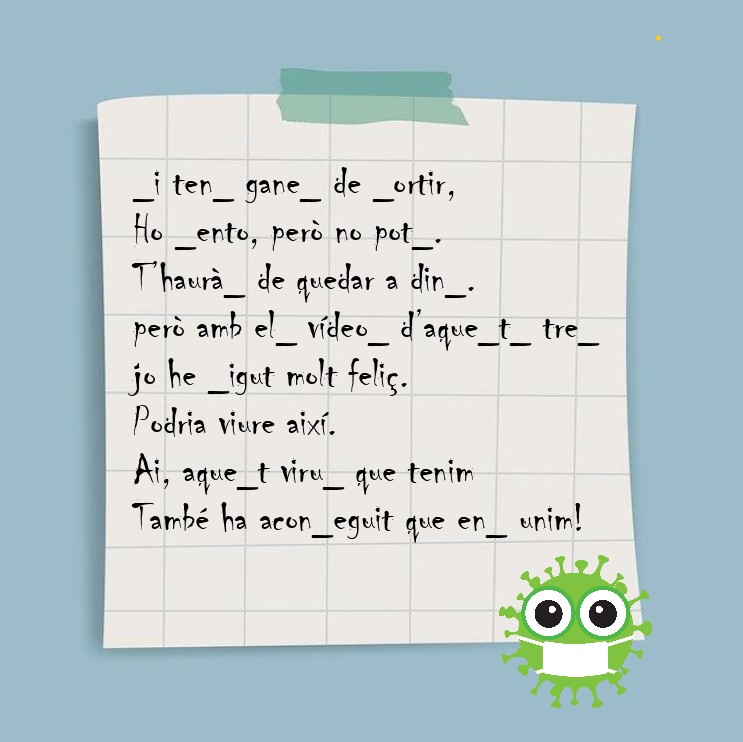 _i ten_ gane_ de _ortir,
Ho _ento, però no pot_.
T'haurà_ de quedar a din_.
però amb el_ vídeo_ d'aque_t_ tre_
jo he _igut molt feliç.
Podria viure així.
Ai, aque_t viru_ que tenim
També ha acon_eguit que en_ unim!